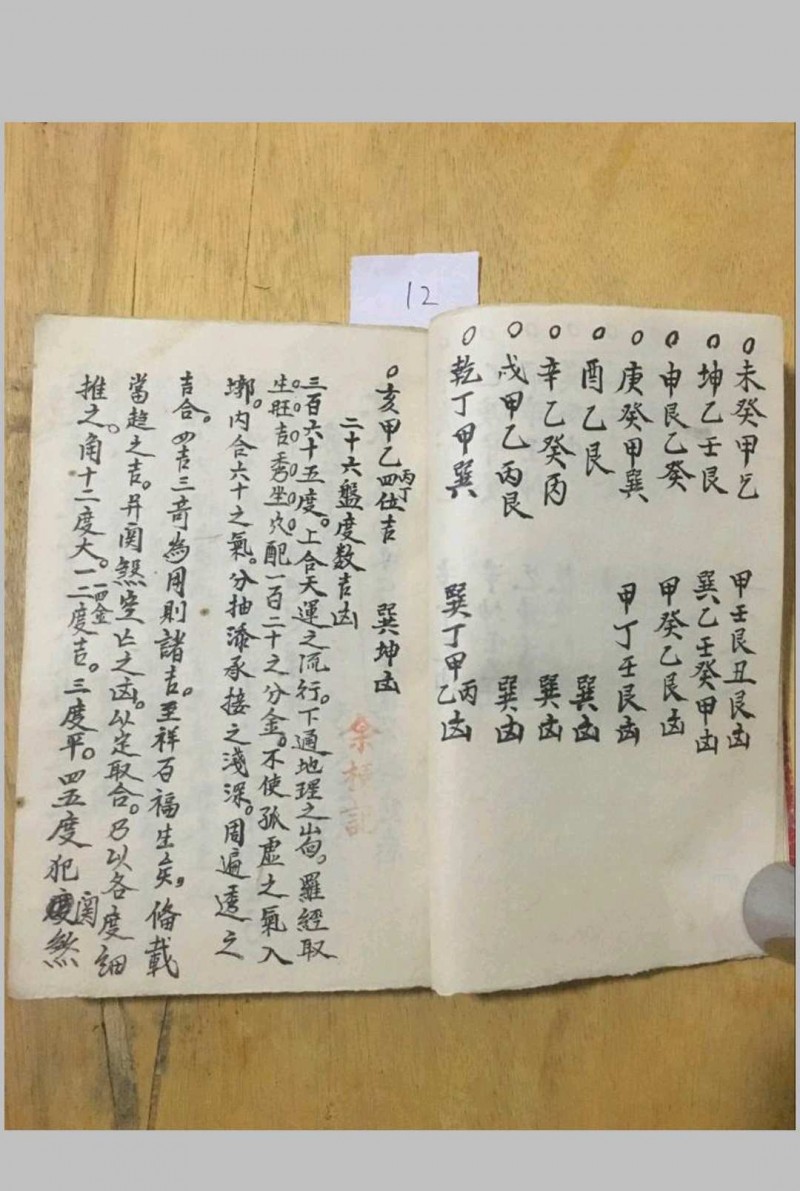 12
○未癸甲乙 甲壬艮丑艮凶
○坤乙壬艮 巽乙壬癸甲凶
○申艮乙癸 甲癸乙艮凶
○庚癸甲巽 甲丁壬艮凶
○酉乙艮 巽凶
○辛乙癸丙 巽凶
○戌甲乙丙艮 巽凶
○乾丁甲巽 巽丁甲丙乙凶
○亥甲乙丙丁四位吉 巽坤凶
二十六盤度数吉凶
三百六十五度。上合天運之流行。下通地理之山向。羅經取
生旺吉秀坐穴。配一百二十之分金。不使孤虛之氣入
墎。内合六十之氣。分抽添承接之淺深。周遍透之
吉合。四吉三奇為用則諸吉。至祥百福生矣。俻載
當趋之吉。并関煞空亡之凶。以定取合。乃以各度細
推之。角十二度大。一二四金度吉。三度平。四五度犯関煞